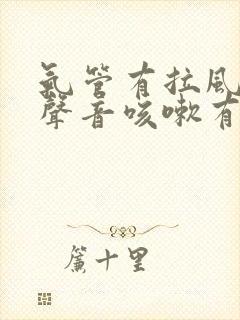 氣管有拉風
聲音咳嗽有
簾十里